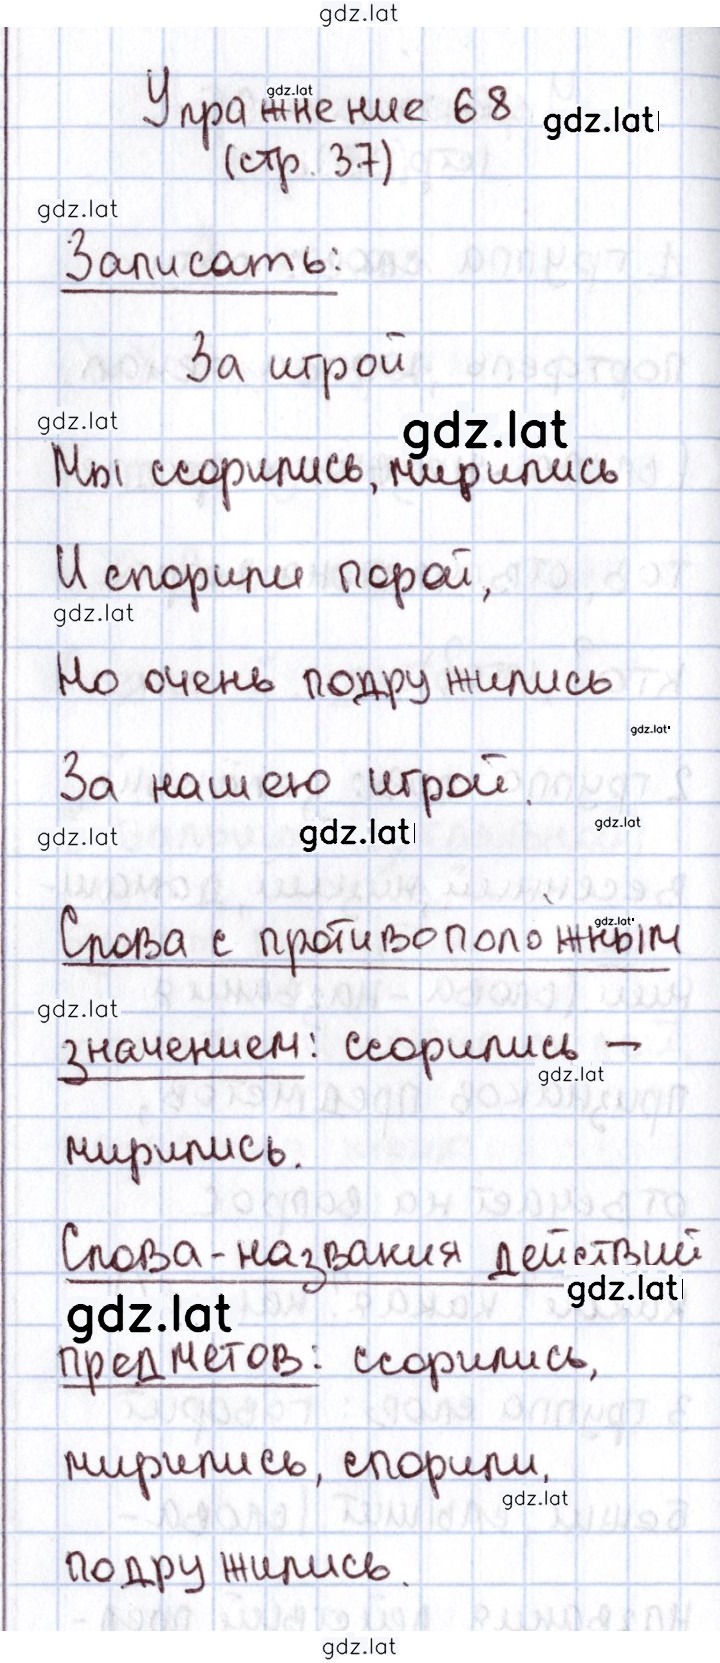 gdz.lat
gdz.lat
Упражнение 68
gdz.lat
(стр. 37)
gdz.lat
Записать:
За игрой
gdz.lat
gdz.lat
Мы ссорились, мирились
И спорили порой,
gdz.lat
Но очень подружились
gdz.lat
За нашею игрой.
gdz.lat
gdz.lat
gdz.lat
gdz.lat
Слова с противоположным
gdz.lat
значением: ссорились –
gdz.lat
мирились.
Слова-названия действий
gdz.lat
gdz.lat
предметов: ссорились,
мирились, спорили,
gdz.lat
подружились.
gdz.lat